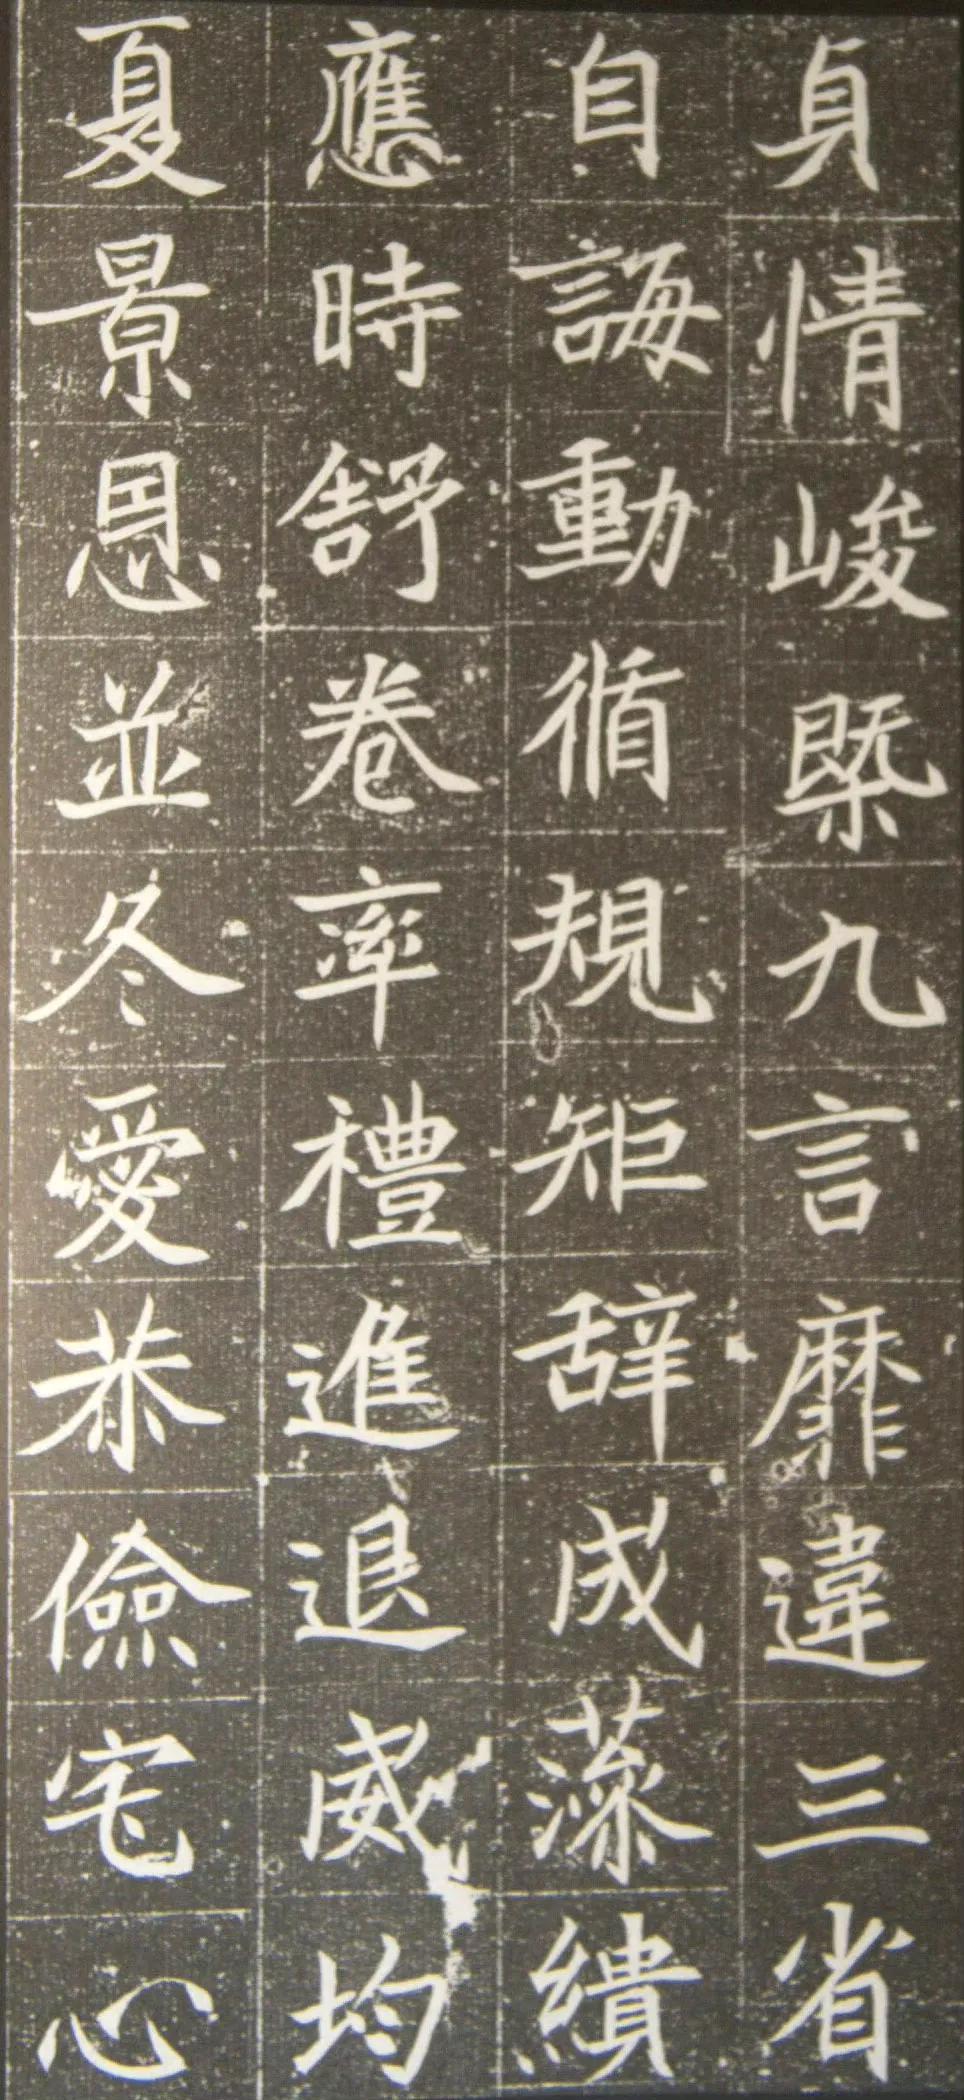 貞情峻槩九言靡違三省
自誨動循規矩辞成藻繢
應時舒卷率禮進退威均
夏景恩並冬愛恭儉宅心